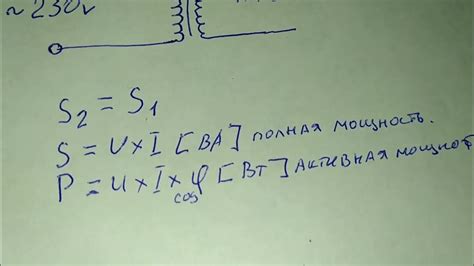 ~230V
S₂ = S₁
S = U×I [ВА] ПОЛНАЯ МОЩНОСТЬ.
P = U×I×φ [ВТ] АКТИВНАЯ МОЩНОСТ
cos